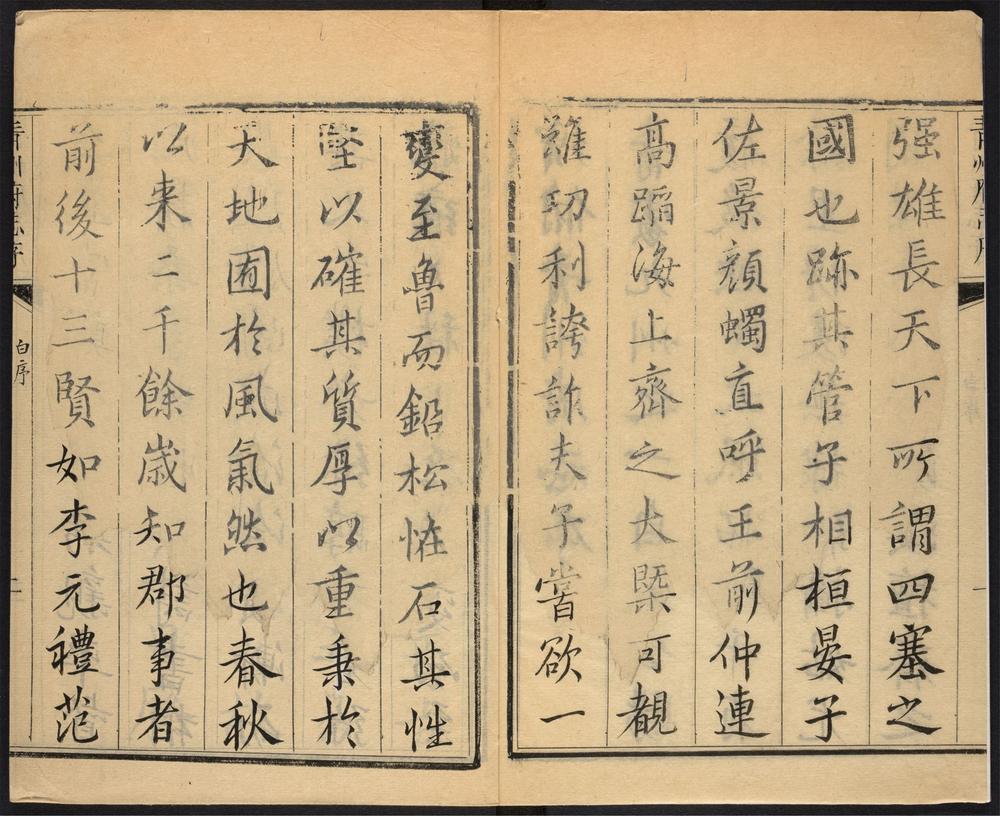 强雄長天下所謂四塞之
國也跡其管子相桓晏子
佐景顔蠋直呼王前仲連
髙蹈海上齊之大槩可覩
雖功利誇詐夫子嘗欲一
變至魯而鉛松恠石其性
坚以確其質厚以重秉於
天地囿於風氣然也春秋
以来二千餘歳知郡事者
前後十三賢如李元禮范
青州府志序
白序
二